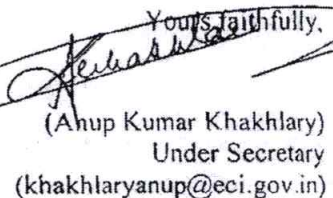 Yours faithfully,
(Anup Kumar Khakhlary)
Under Secretary
(khakhlaryanup@eci.gov.in)